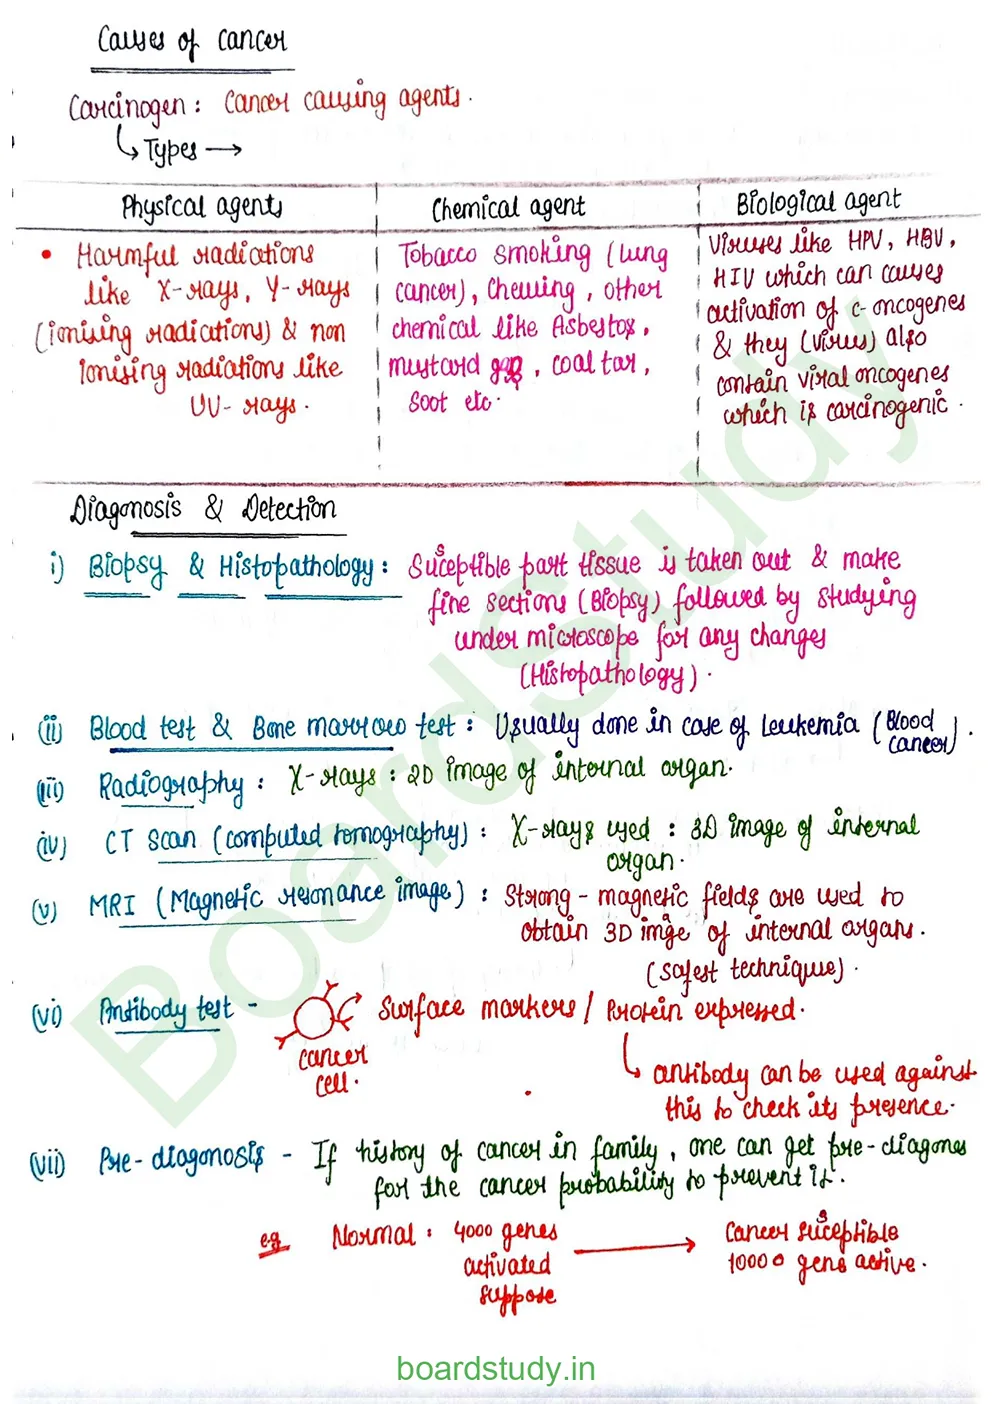 Causes of cancer
Carcinogen : Cancer causing agents .
↳ Types →
Physical agents
• Harmful radiations
like X-rays, γ-rays
(ionising radiations) & non
Ionising radiations like
UV-rays .
Chemical agent
Tobacco smoking (lung
cancer), Chewing , other
chemical like Asbestos,
mustard gas , coal tar,
Soot etc .
Biological agent
Viruses like HPV, HBV,
HIV which can causes
activation of c-oncogenes
& they (virus) also
contain viral oncogenes
which is carcinogenic .
Diagonosis & Detection
i) Biopsy & Histopathology : Susceptible part tissue is taken out & make
fine sections (Biopsy) followed by studying
under microscope for any changes
(Histopathology) .
(ii) Blood test & Bone marrow test : Usually done in case of Leukemia (Blood cancer) .
(iii) Radiography : X-rays : 2D image of internal organ.
(iv) CT Scan (computed tomography) : X-rays used : 3D image of internal
organ.
(v) MRI (Magnetic resonance image) : Strong - magnetic fields are used to
obtain 3D imge of internal organs .
(safest technique) .
(vi) Antibody test - Surface markers / Protein expressed .
cancer
cell .
↳ antibody can be used against
this to check its presence .
(vii) Pre-diagonosis - If history of cancer in family, one can get pre-diagones
for the cancer probability to prevent it .
e.g Normal : 4000 genes → Cancer susceptible
activated 10000 gens active .
suppose
BoardStudy
boardstudy.in